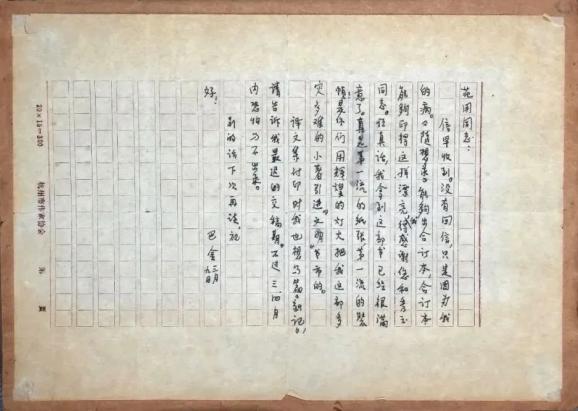 范用同志：
信早收到。没有回信，只是因为我
的病。《随想录》能够出合订本，合订本
能够印得这样漂亮，我得感谢您和秀玉
同志。说真话，我拿到这部书已经很满
意了。真是第一流的纸张，第一流的装
帧！是你们用辉煌的灯火把我这部多
灾多难的小著引进“文明”书市的。
译文集付印时我也想写篇“新记”，
请告诉我最迟的交稿期。不过三、四月
内恐怕写不出来。
别的话下次再谈。祝
好！
巴金
三月
九日
20×15=300
杭州市作家协会
第 页